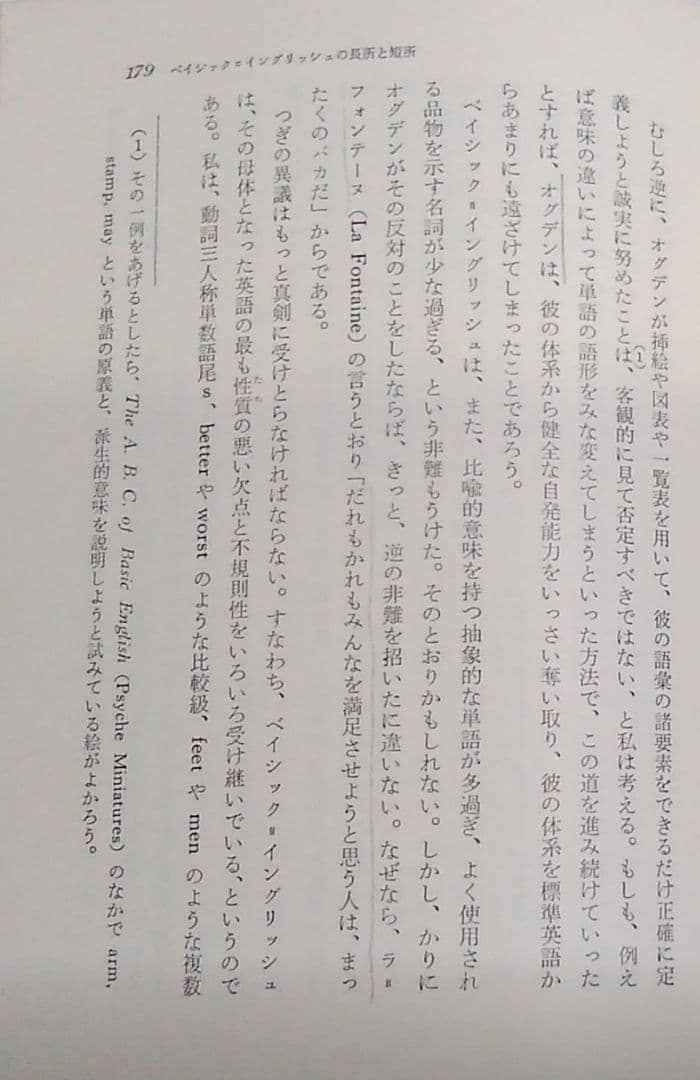 179 ベイシック゠イングリッシュの長所と短所
むしろ逆に、オグデンが挿絵や図表や一覧表を用いて、彼の語彙の諸要素をできるだけ正確に定
義しようと誠実に努めたことは、(1)客観的に見て否定すべきではない、と私は考える。もしも、例え
ば意味の違いによって単語の語形をみな変えてしまうといった方法で、この道を進み続けていった
とすれば、オグデンは、彼の体系から健全な自発能力をいっさい奪い取り、彼の体系を標準英語か
らあまりにも遠ざけてしまったことであろう。
ベイシック゠イングリッシュは、また、比喩的意味を持つ抽象的な単語が多過ぎ、よく使用され
る品物を示す名詞が少な過ぎる、という非難もうけた。そのとおりかもしれない。しかし、かりに
オグデンがその反対のことをしたならば、きっと、逆の非難を招いたに違いない。なぜなら、ラ゠
フォンテーヌ(La Fontaine)の言うとおり「だれもかれもみんなを満足させようと思う人は、まっ
たくのバカだ」からである。
つぎの異議はもっと真剣に受けとらなければならない。すなわち、ベイシック゠イングリッシュ
は、その母体となった英語の最も性質(たち)の悪い欠点と不規則性をいろいろ受け継いでいる、というので
ある。私は、動詞三人称単数語尾s、better や worst のような比較級、feet や men のような複数
(1) その一例をあげるとしたら、The A. B. C. of Basic English (Psyche Miniatures) のなかで arm,
stamp, may という単語の原義と、派生的意味を説明しようと試みている絵がよかろう。